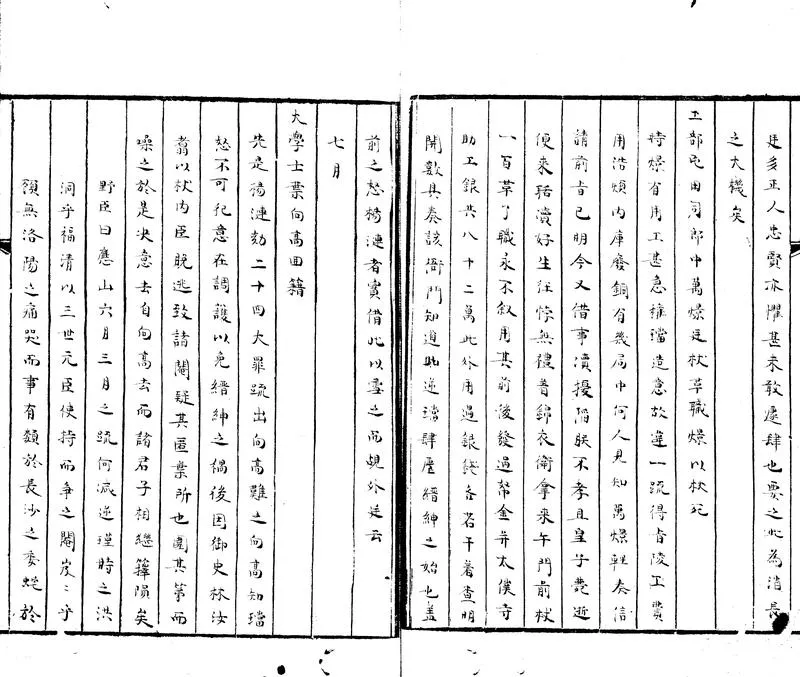 廷多正人忠賢亦懼甚未敢遽肆也要之此為消長
之大機矣
工部屯田司郎中萬燝廷杖革職燝以杖死
時燝有用工甚急權璫造意故違一疏得旨陵工費
用浩煩內庫廢銅有幾局中何人見知萬燝輕奏信
請前旨已明今又借事瀆擾陷朕不孝且皇子薨逝
便來聒瀆好生狂悖無禮着錦衣衛拿來午門前杖
一百革了職永不敘用其前後發過帑金并太僕寺
助工銀共八十二萬此外用過銀錢各若干着查明
開數具奏該衙門知道此逆璫肆虐縉紳之始也蓋
前之怒楊漣者實借此以雪之而覷外廷云
七月
大學士葉向高回籍
先是楊漣劾二十四大罪疏出向高難之向高知璫
怒不可犯意在調護以免縉紳之禍後因御史林汝
翥以杖內臣脫逃致諸閹疑其匿葉所也圍其第而
噪之於是决意去自向高去而諸君子相繼籜隕矣
野臣曰應山六月三月之疏何減逆瑾時之洪
洞乎福清以三世元臣使持而爭之閹岌〻乎
領無洛陽之痛哭而事有類於長沙之委蛇於